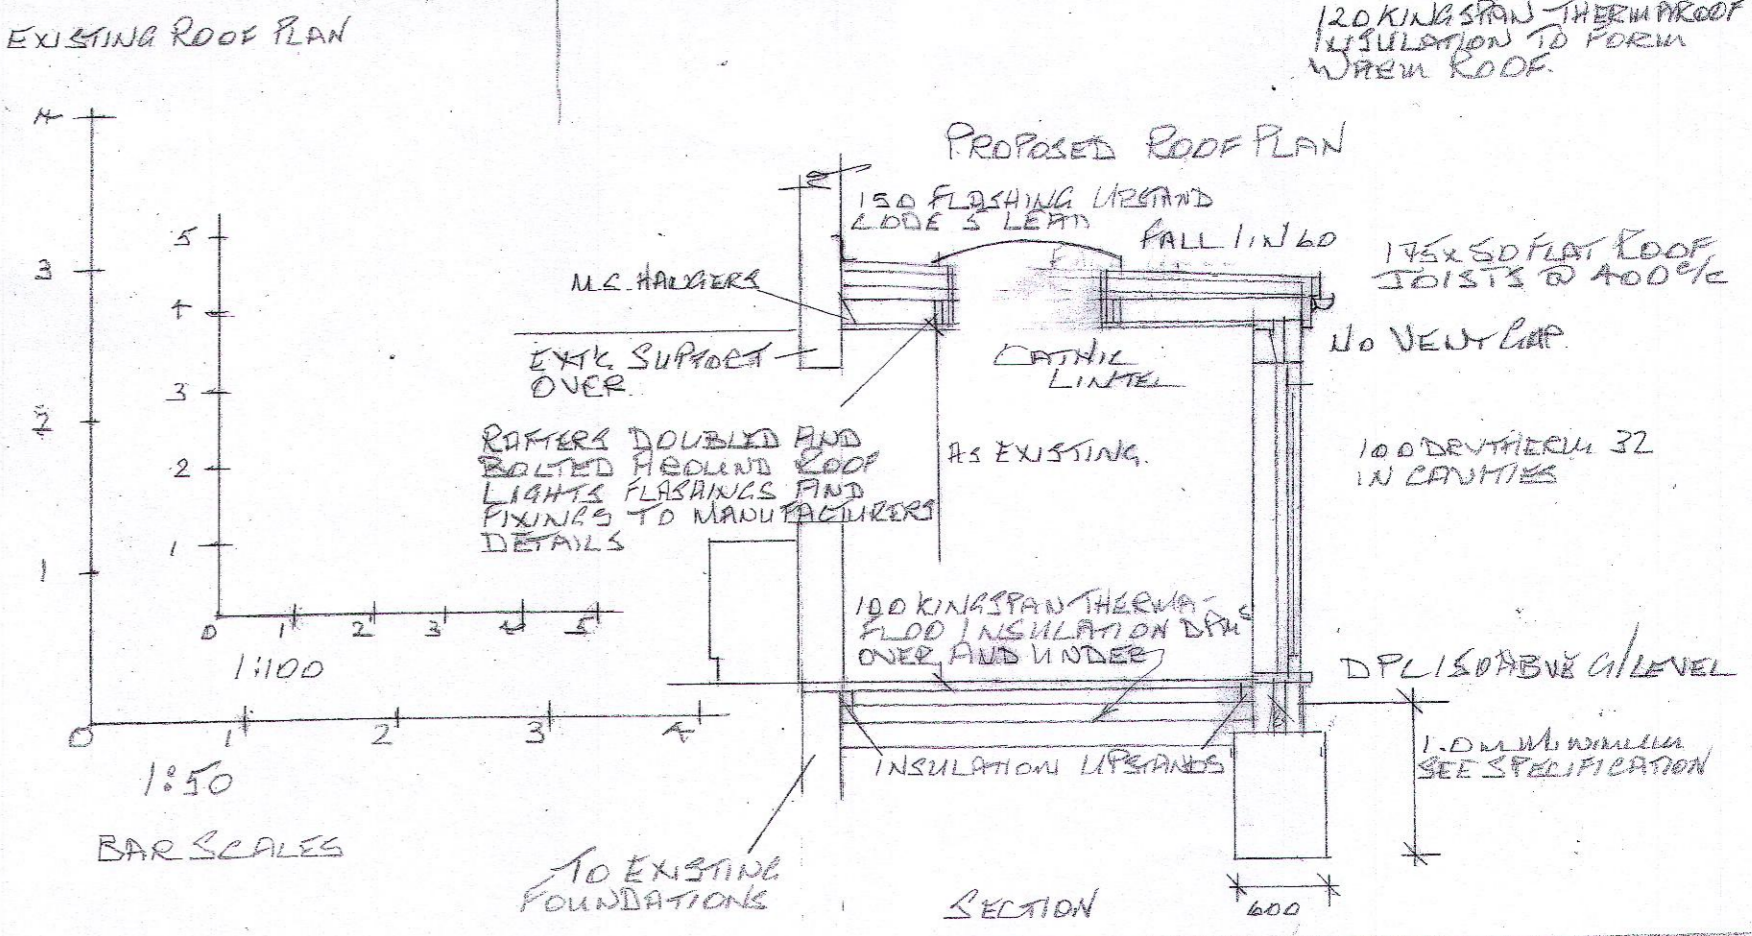 EXISTING ROOF PLAN
120 KINGSPAN THERMAROOF
INSULATION TO FORM
WARM ROOF.
PROPOSED ROOF PLAN
150 FLASHING UPSTAND
CODE 5 LEAD
FALL 1 IN 60
175x50 FLAT ROOF
JOISTS @ 400 c/c
M.S. HANGERS
NO VENT GAP.
EXTG SUPPORT
OVER.
CATNIC
LINTEL
RAFTERS DOUBLED AND
BOLTED AROUND ROOF
LIGHTS FLASHINGS AND
FIXINGS TO MANUFACTURERS
DETAILS
AS EXISTING.
100 DRYTHERM 32
IN CAVITIES
100 KINGSPAN THERMA-
FLOO INSULATION DPM'S
OVER AND UNDER
DPC 150 ABVE G/LEVEL
INSULATION UPSTANDS
1.0m MINIMUM
SEE SPECIFICATION
TO EXISTING
FOUNDATIONS
SECTION
600
4
3
2
1
0 1 2 3 4
1:50
5
4
3
2
1
0 1 2 3 4 5
1:100
BAR SCALES